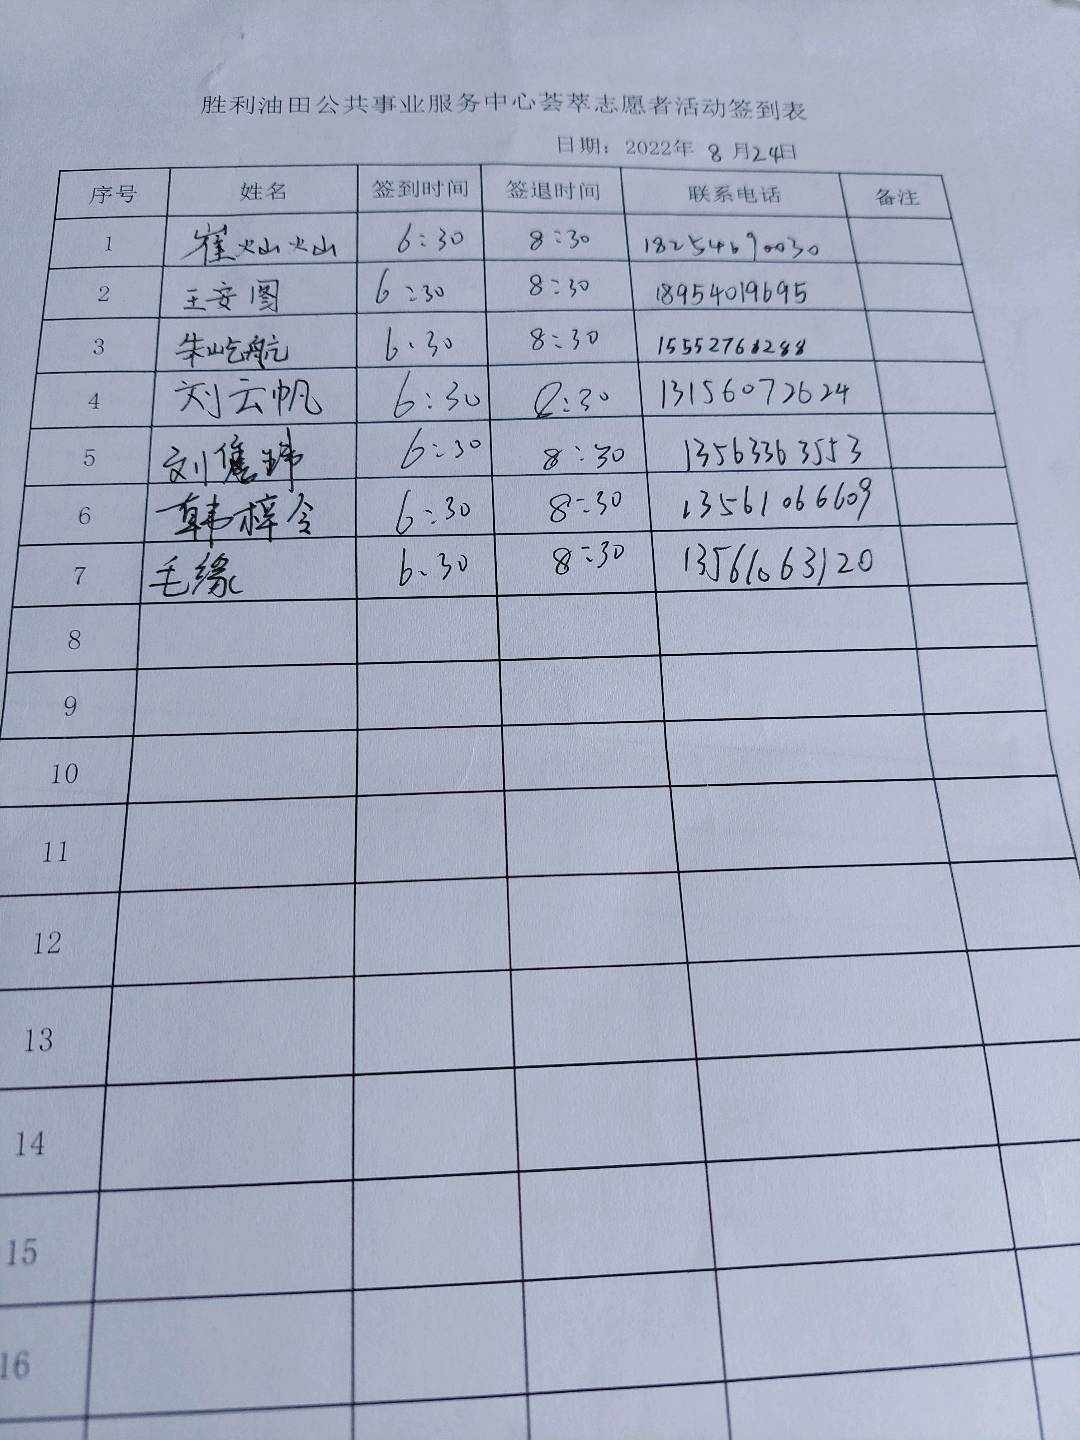 胜利油田公共事业服务中心荟萃志愿者活动签到表
日期：2022年 8 月24日
序号 姓名 签到时间 签退时间 联系电话 备注
1 崔灿灿 6:30 8:30 18254690030
2 王安图 6:30 8:30 18954019695
3 朱屹航 6:30 8:30 15552761288
4 刘云帆 6:30 8:30 13156072624
5 刘隽玮 6:30 8:30 13563363553
6 韩梓令 6:30 8:30 13561066609
7 毛缘 6:30 8:30 13561063120
8
9
10
11
12
13
14
15
16